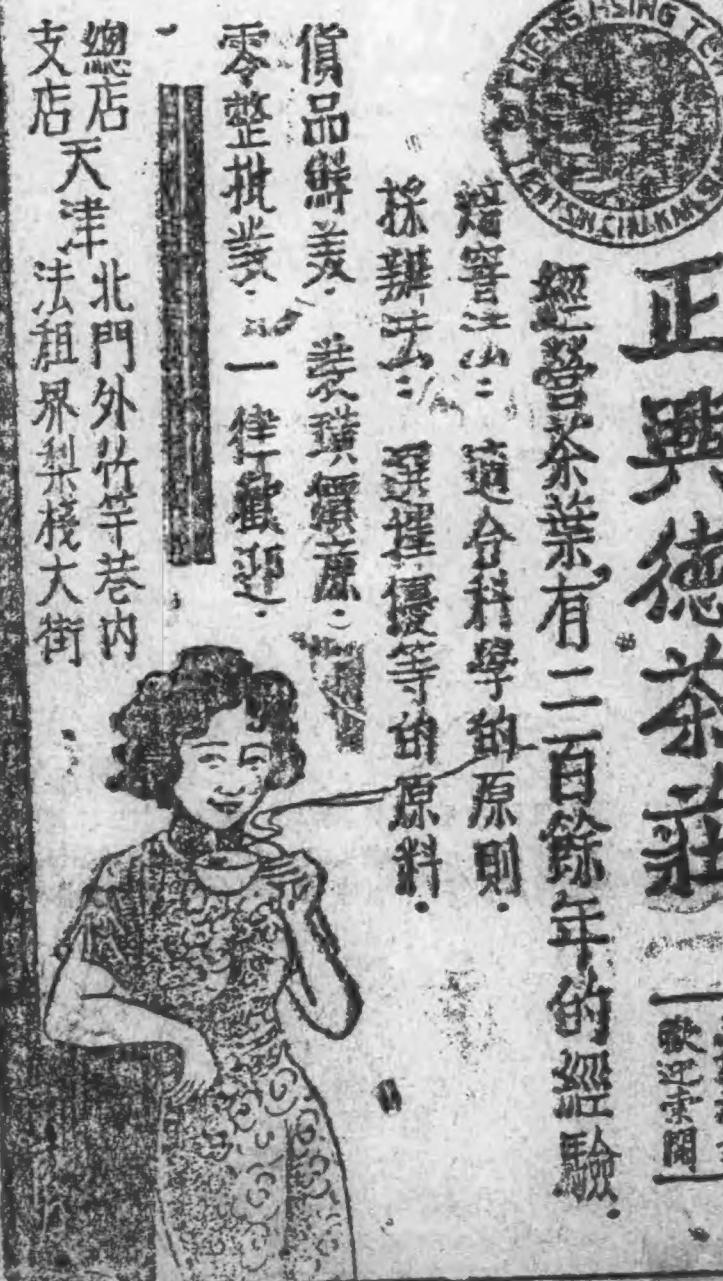 CHENG HSING TE
TIENTSIN
正興德茶莊
歡迎索閱
經營茶葉有二百餘年的經驗．
窨法：適合科學的原則．
採辦法：選擇優等的原料．
貨品鮮美．裝璜價廉．
零整批業．一律歡迎．
總店
支店
天津
北門外竹竿巷內
法租界梨棧大街